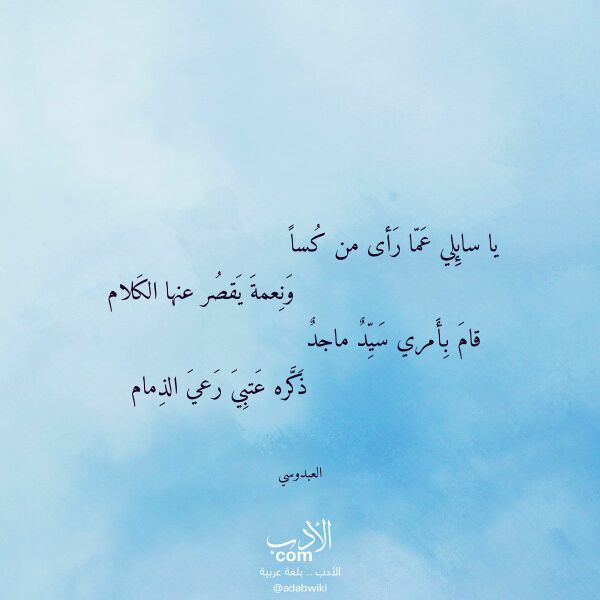 يا سايِلِي عَمّا رَأى من كُساً
وَنِعمةَ يَقصُر عنها الكَلام
قامَ بِأَمري سَيِّدٌ ماجدٌ
ذَكَّره عَتبِيَ رَعيَ الذِمام
العبدوسي
الأدب
com
الأدب .. بلغة عربية
@adabwiki